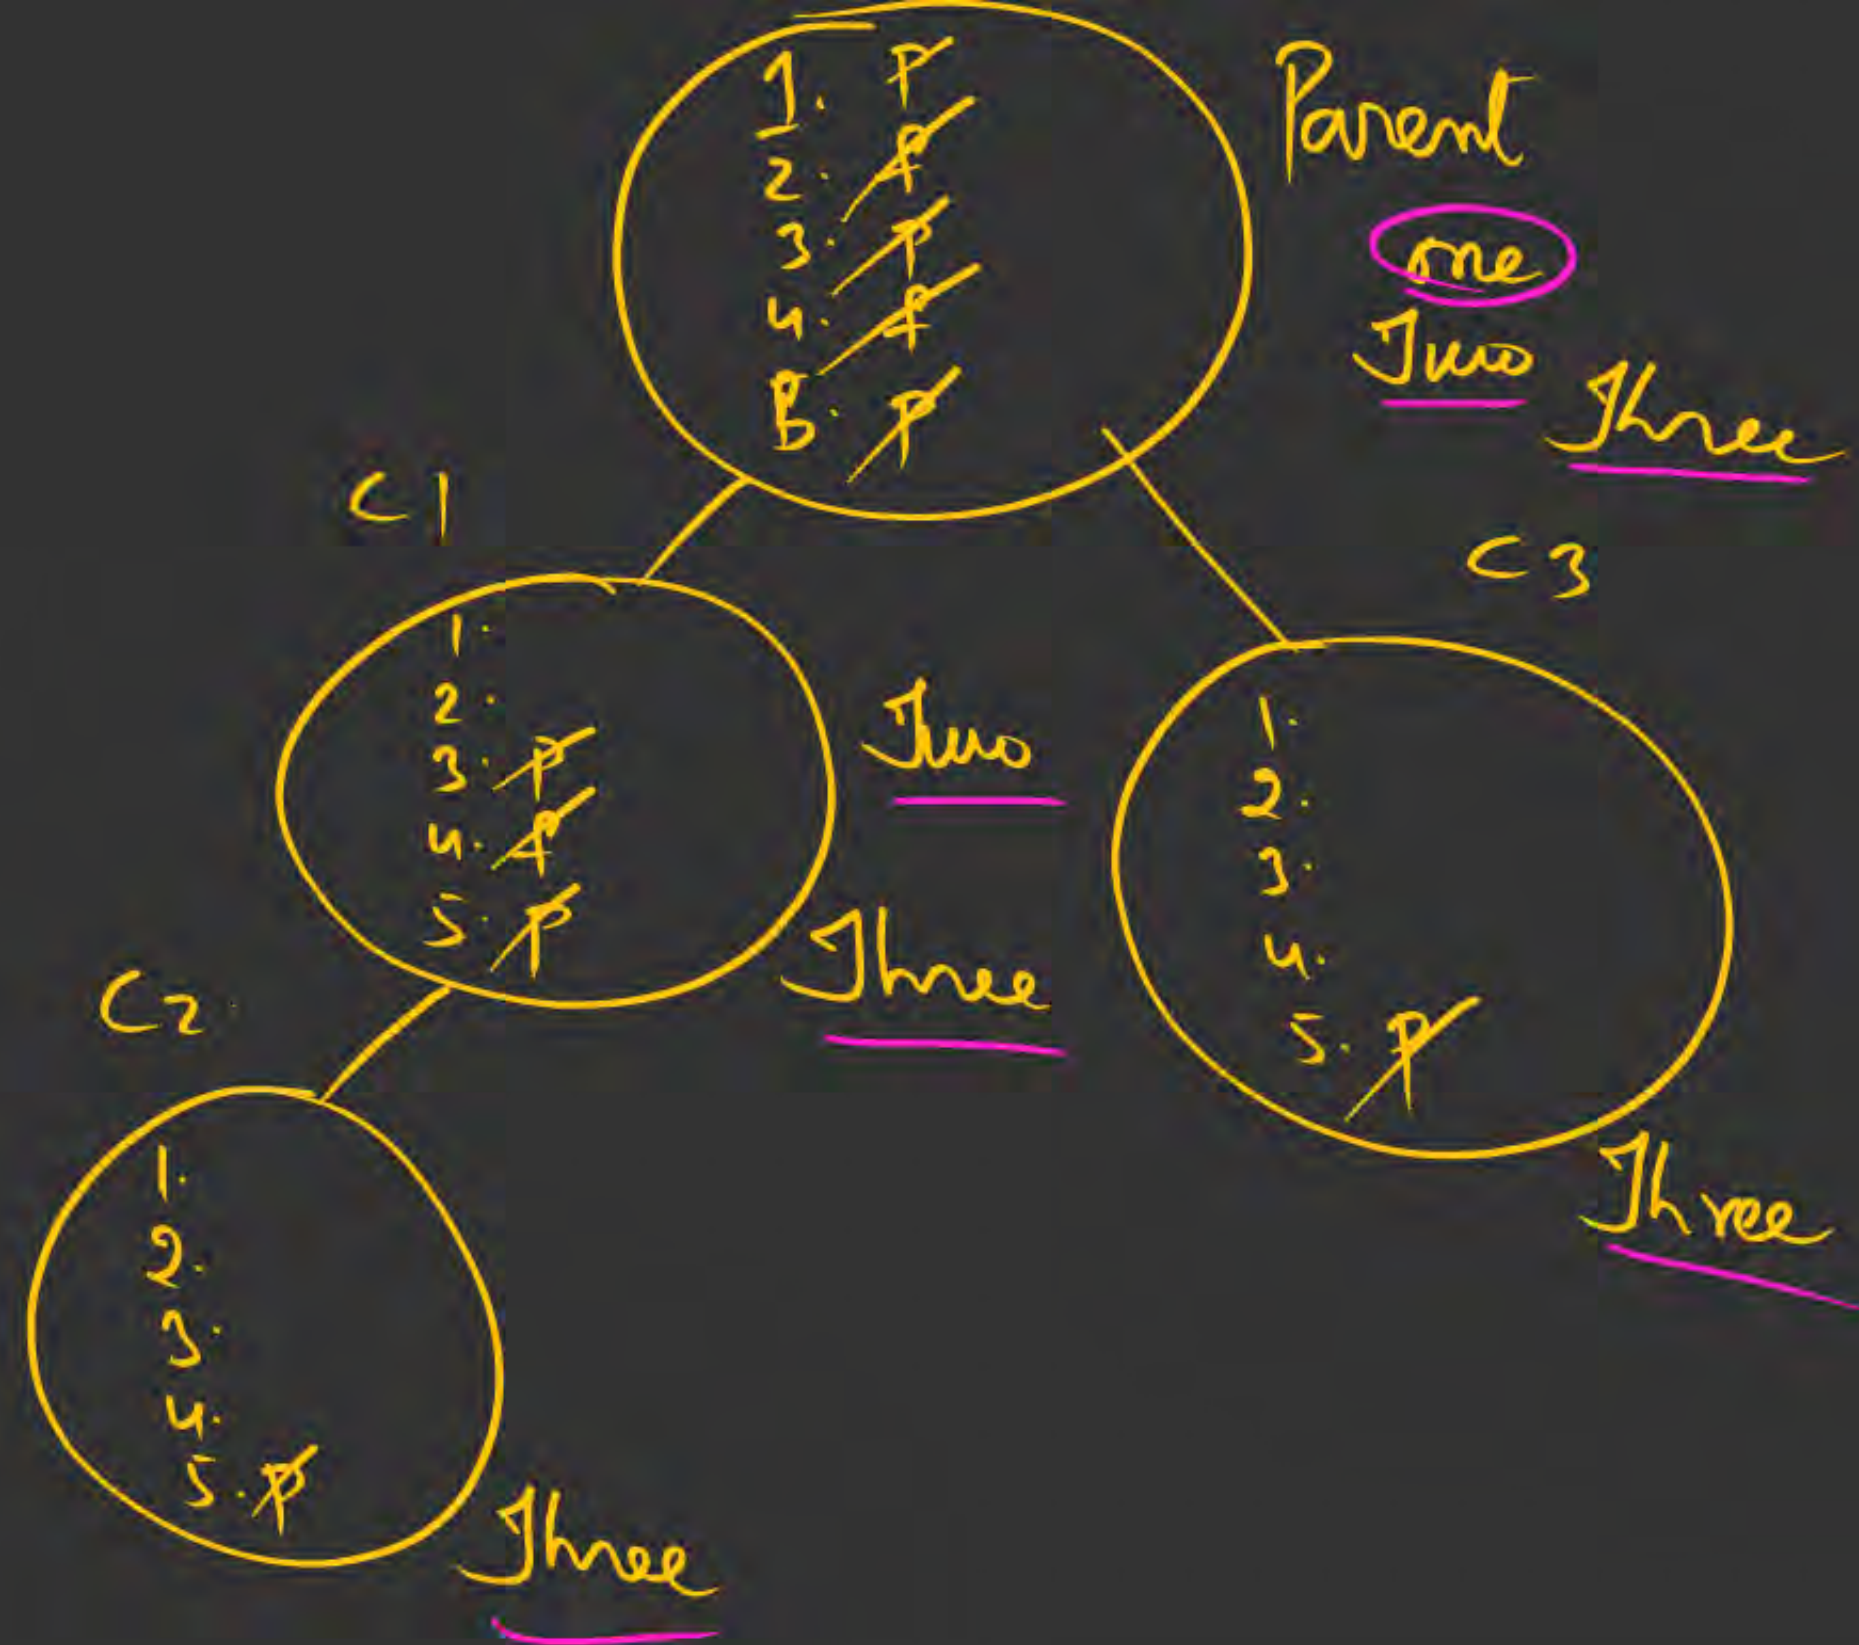 1. P
2. P
3. P
4. P
5. P
Parent
one
Two
Three
C1
1.
2.
3. P
4. P
5. P
Two
Three
C3
1.
2.
3.
4.
5. P
Three
C2
1.
2.
3.
4.
5. P
Three